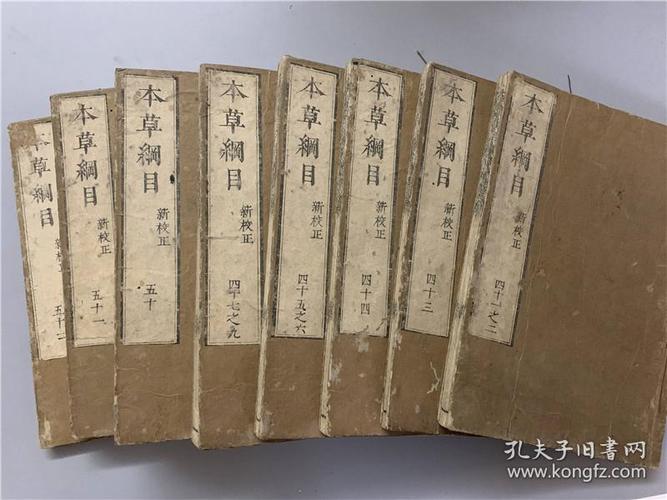 本草綱目 新校正 四十一之二
本草綱目 新校正 四十三
本草綱目 新校正 四十四
本草綱目 新校正 四十五之六
本草綱目 新校正 四十七之九
本草綱目 新校正 五十
本草綱目 新校正 五十一
本草綱目 新校正 五十二
孔夫子旧书网
www.kongfz.com